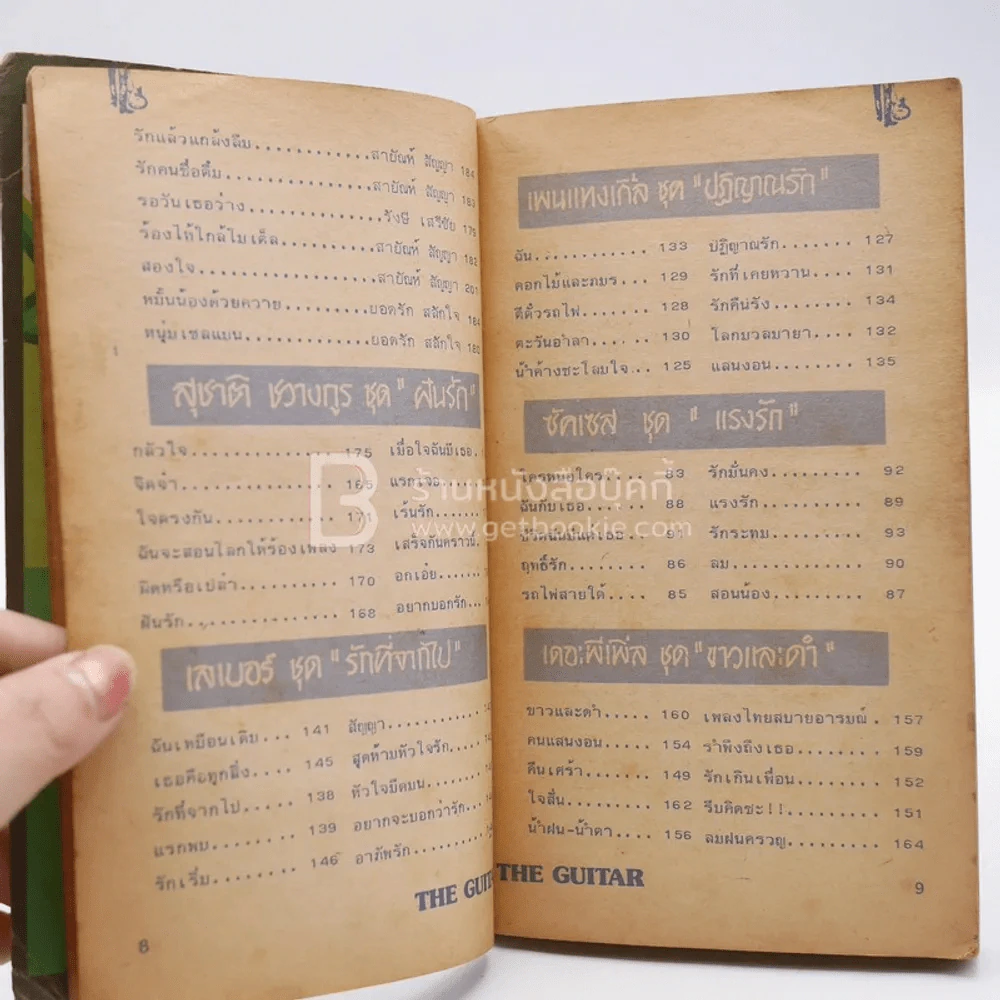 รักแล้วแกล้งลืม............สายัณห์ สัญญา 184
รักคนชื่อติ๋ม...............สายัณห์ สัญญา 183
รอวันเธอว่าง..............รังษี เสรีชัย 179
ร้องไห้ใกล้ไมเค็ล.........สายัณห์ สัญญา 182
สองใจ..................สายัณห์ สัญญา 201
หมั้นน้องด้วยควาย.........ยอดรัก สลักใจ 184
หนุ่มเซลแมน.............ยอดรัก สลักใจ 180
สุชาติ ชวางกูร ชุด "ฝันรัก"
กลัวใจ............ 175 เมื่อใจฉันมีเธอ.
จืดจำ............ 165 แรกเจอ
ใจตรงกัน......... 171 เร้นรัก.....
ฉันจะสอนโลกให้ร้องเพลง 173 เสร็จกันคราวนี้.
ผิดหรือเปล่า....... 170 อกเอ๋ย.......
ฝันรัก............ 168 อยากบอกรัก...
เลเบอร์ ชุด "รักที่จากไป"
ฉันเหมือนเดิม.... 141 สัญญา..........
เธอคือทุกสิ่ง..... 145 สุดห้ามหัวใจรัก.
รักที่จากไป...... 138 หัวใจมืดมน......
แรกพบ......... 139 อยากจะบอกว่ารัก.
รักเริ่ม......... 146 อาภัพรัก........
THE GUIT
8
เพนแทงเกิล ชุด "ปฏิญาณรัก"
ฉัน............. 133 ปฏิญาณรัก....... 127
ดอกไม้และภมร... 129 รักที่เคยหวาน.... 131
ตีตั๋วรถไฟ....... 128 รักคืนรัง........ 134
ตะวันอำลา...... 130 โลกมวลมายา.... 132
น้ำค้างชะโลมใจ.. 125 แสนงอน........ 135
ซัคเซส ชุด "แรงรัก"
ใครหนอใคร..... 83 รักมั่นคง........ 92
ฉันกับเธอ....... 88 แรงรัก......... 89
91 รักระทม........ 93
ฤทธิ์รัก......... 86 ลม............ 90
รถไฟสายใต้..... 85 สอนน้อง........ 87
เดอะพีเพิ่ล ชุด "ขาวและดำ"
ขาวและดำ..... 160 เพลงไทยสบายอารมณ์. 157
คนแสนงอน..... 154 รำพึงถึงเธอ...... 159
คืนเศร้า....... 149 รักเกินเพื่อน..... 152
ใจสั่น......... 162 รีบคิดซะ!!...... 151
น้ำฝน-น้ำตา.... 156 ลมฝนครวญ...... 164
THE GUITAR
9
ร้านหนังสือบุ๊คกี้
www.getbookie.com